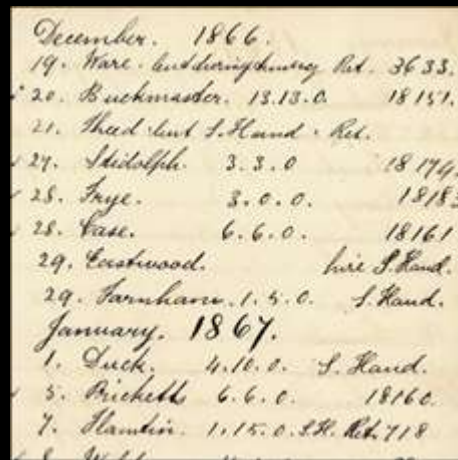 December. 1866.
19. Ware. lent during Ret. 3633.
20. Buckmaster. 13.13.0. 18151.
21. lent S. Hand. Ret.
27. Stidolph. 3.3.0 18179.
28. Frye. 3.0.0. 18183
28. Case. 6.6.0. 18161
29. Eastwood. hire S. Hand.
29. Farnham. 1.5.0. S. Hand.
January. 1867.
1. Duck. 4.10.0. S. Hand.
5. Prickett 6.6.0. 18160.
7. 1.15.0. S.H. Ret. 718